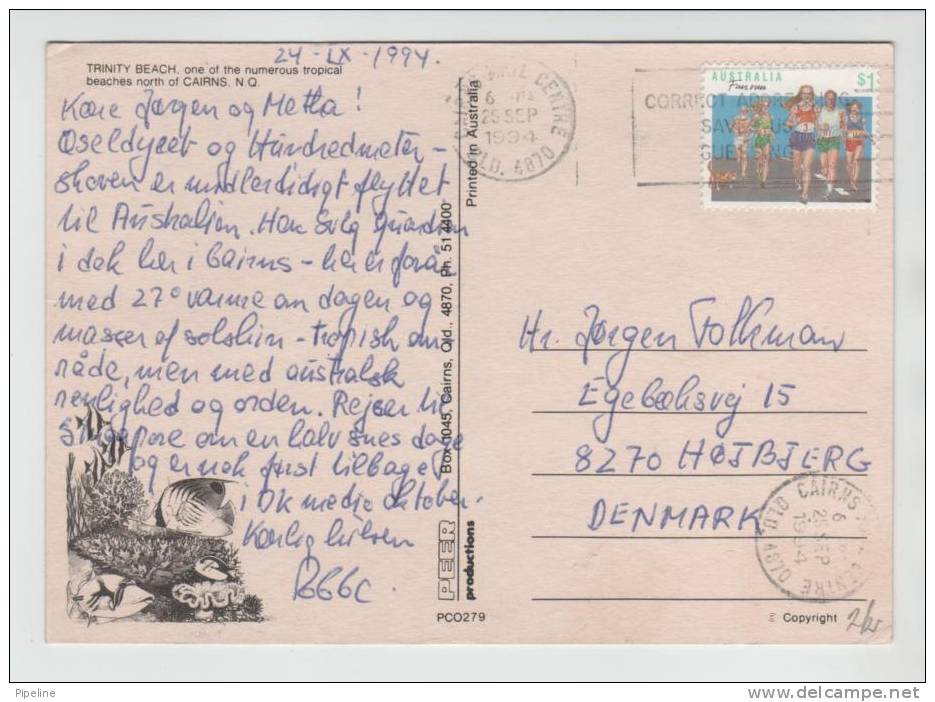 24-IX-1994.
TRINITY BEACH, one of the numerous tropical
beaches north of CAIRNS, N.Q.
Kære Jørgen og Metta!
og Hundredmeter-
skoven er midlertidigt flyttet
til Australien. Har
i dek her i Cairns – her er forår
med 27° varme om dagen og
masser af solskin – tropisk om
råde, men med australsk
renlighed og orden. Rejser til
Singapore om en halv snes dage
og er nok først tilbage
i DK medio oktober.
Kærlig hilsen
PEER productions
Box 1045, Cairns, Qld., 4870, Ph. 51 4400
Printed in Australia
PCO279
CAIRNS MAIL CENTRE
6
25 SEP
1994
QLD. 4870
CORRECT ADDRESSING
SAVES US
GUESSING
AUSTRALIA
$1
Fun run
Hr. Jørgen Folkman
Egebæksvej 15
8270 HØJBJERG
DENMARK
CAIRNS
CENTRE
6
25 SEP
1994
QLD 4870
Copyright
Pipeline
www.delcampe.net